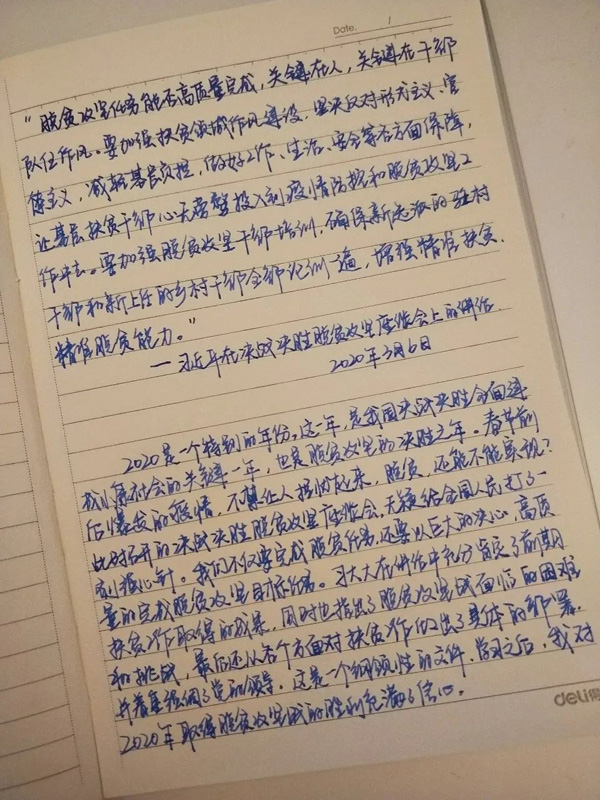 Date. /
“脱贫攻坚任务能否高质量完成，关键在人，关键在干部
队伍作风。要加强扶贫领域作风建设，坚决反对形式主义、官
僚主义，减轻基层负担，做好工作、生活、安全等各方面保障，
让基层扶贫干部心无旁骛投入到疫情防控和脱贫攻坚工
作中去。要加强脱贫攻坚干部培训，确保新选派的驻村
干部和新上任的乡村干部全部轮训一遍，增强精准扶贫、
精准脱贫能力。”
—习近平在决战决胜脱贫攻坚座谈会上的讲话
2020年3月6日
2020是一个特别的年份，这一年，是我国决战决胜全面建
成小康社会的关键一年，也是脱贫攻坚的决胜之年。春节前
后爆发的疫情，不禁让人揪心起来，脱贫，还能不能实现？
此时召开的决战决胜脱贫攻坚座谈会，无疑给全国人民打了一
剂强心针。我们不仅要完成脱贫任务，还要以巨大的决心，高质
量的完成脱贫攻坚目标任务。习大大在讲话中充分肯定了前期
扶贫工作取得的成果，同时也指出了脱贫攻坚战面临的困难
和挑战，最后还从各个方面对扶贫工作做出了具体的部署，
并着重强调了党的领导。这是一个纲领性的文件，学习之后，我对
2020年取得脱贫攻坚战的胜利充满了信心。
deli得